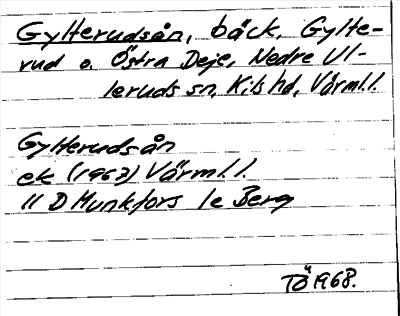 Gylterudsån, bäck, Gylte-
rud o. Östra Deje, Nedre Ul-
leruds sn, Kils hd, Värml.l.
Gylterudsån
ek (1963) Värml.l.
11 D Munkfors 1e Berg
TÖ 1968.